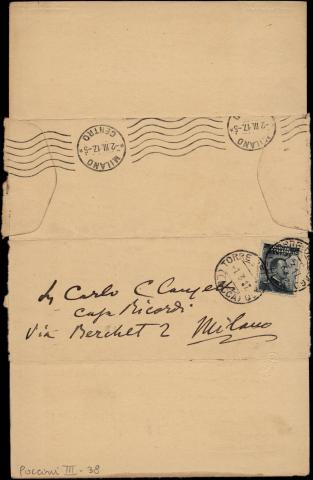 MILANO CENTRO
-2.III.17.-5
MILANO
-2.III.17.-5
CENTRO
TORRE
Carlo
casa Ricordi
Via Berchet 2 Milano
Puccini III - 38